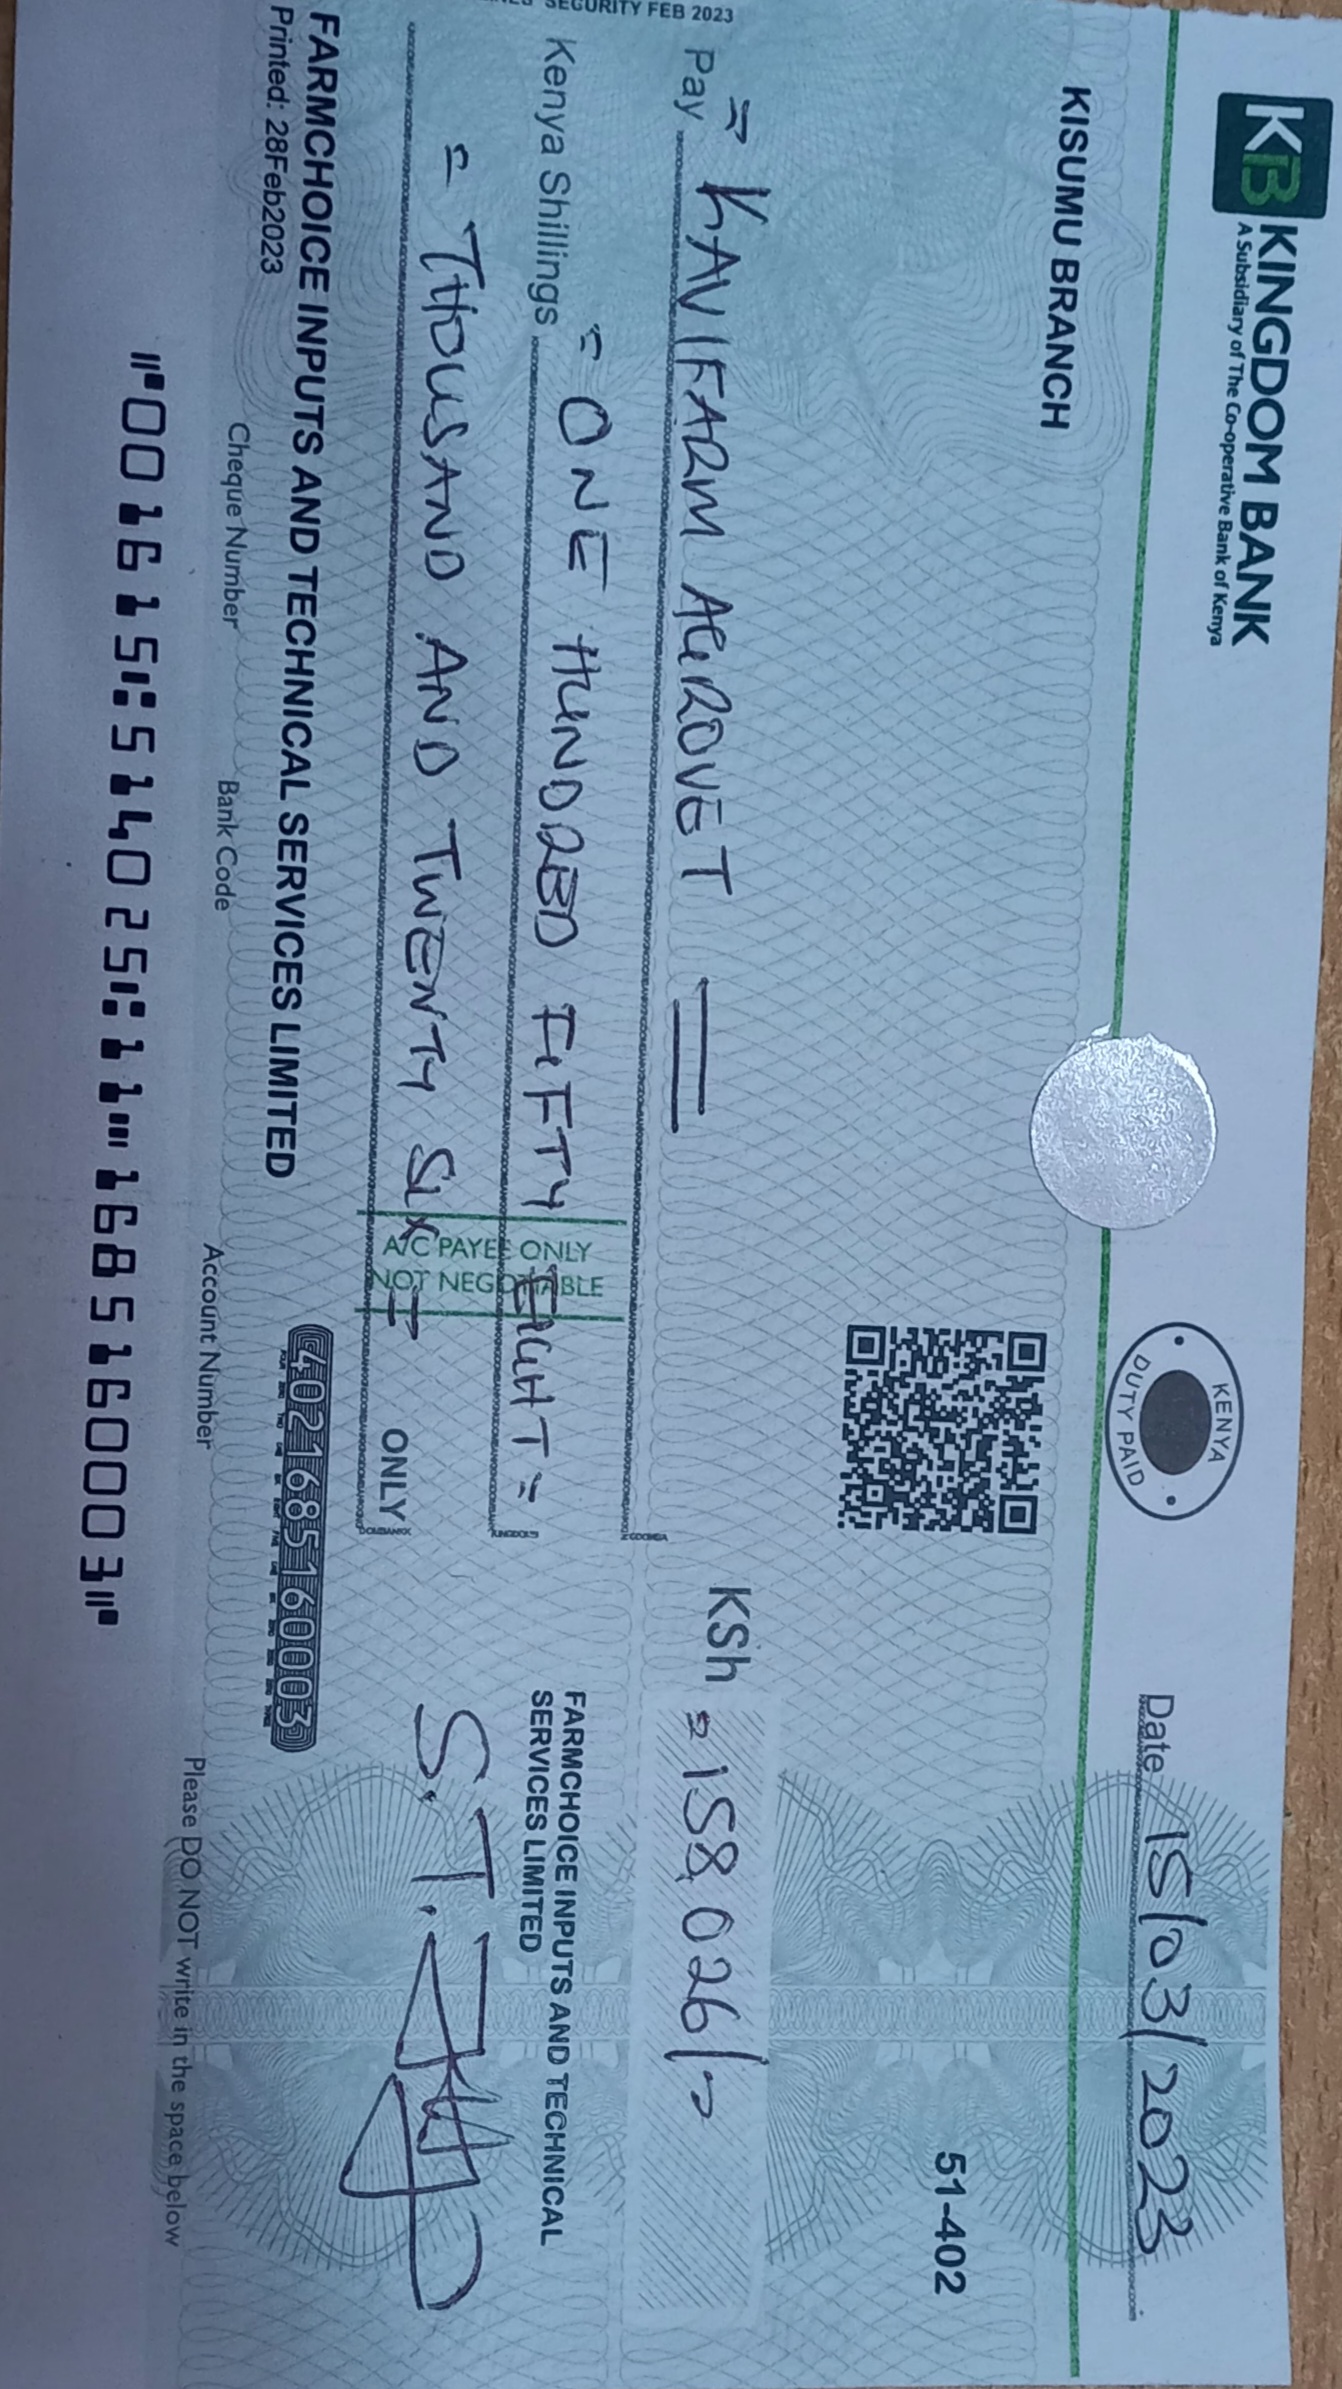 SECURITY FEB 2023
KB KINGDOM BANK
A Subsidiary of The Co-operative Bank of Kenya
KENYA
DUTY PAID
Date 15/03/2023
KISUMU BRANCH
51-402
Pay = KAVIFARM AGROVET =
KSh = 158,026/=
Kenya Shillings = ONE HUNDRED FIFTY EIGHT =
= THOUSAND AND TWENTY SIX = ONLY
A/C PAYEE ONLY
NOT NEGOTIABLE
FARMCHOICE INPUTS AND TECHNICAL
SERVICES LIMITED
S.T.
FARMCHOICE INPUTS AND TECHNICAL SERVICES LIMITED
Printed: 28Feb2023
4021685160003
Cheque Number Bank Code Account Number Please DO NOT write in the space below
⑈001615⑆514025⑆11⑈1685160003⑈